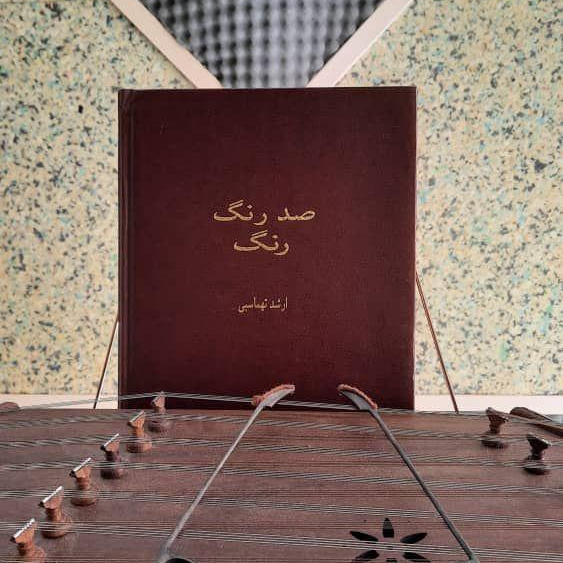 صد رنگ
رنگ
ارشد تهماسبی